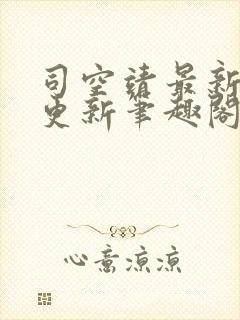 司空靖最新
更新笔趣阁
心意凉凉